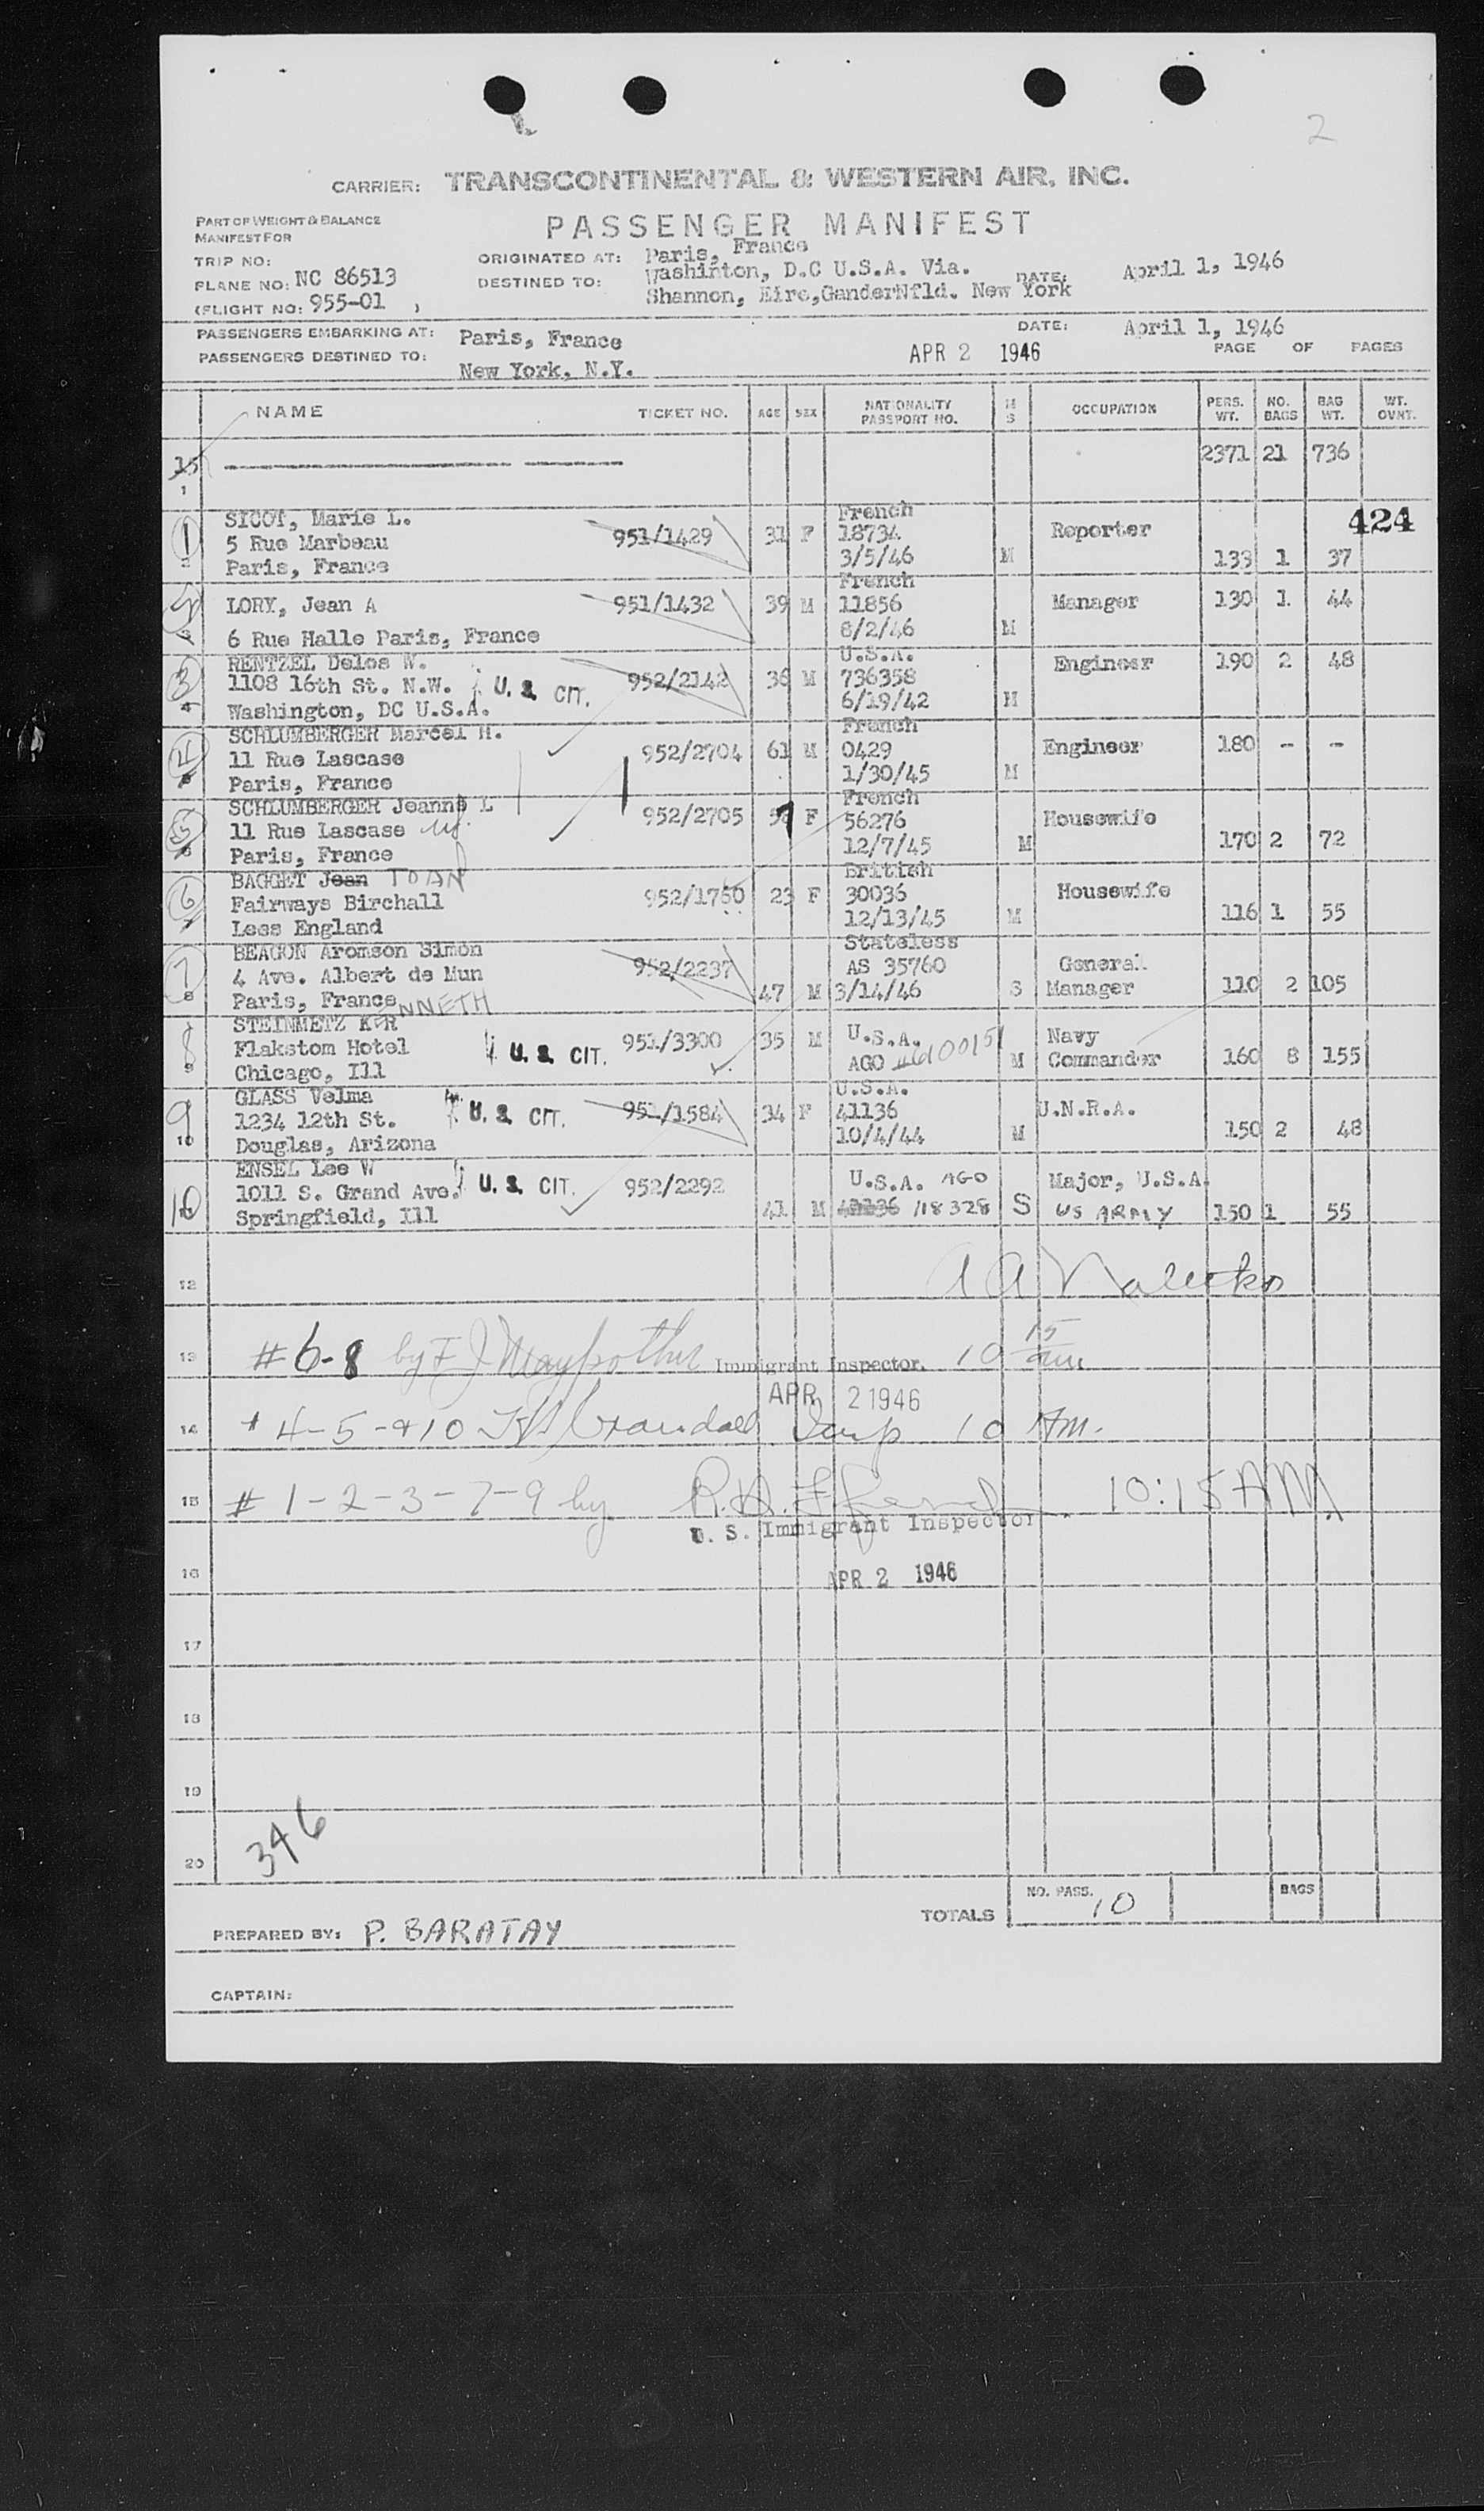 2
CARRIER: TRANSCONTINENTAL & WESTERN AIR, INC.
PART OF WEIGHT & BALANCE
MANIFEST FOR
PASSENGER MANIFEST
TRIP NO:
ORIGINATED AT: Paris, France
PLANE NO: NC 86513
DESTINED TO: Washinton, D.C U.S.A. Via.
Shannon, Eire,GanderNfld. New York
DATE: April 1, 1946
(FLIGHT NO: 955-01 )
PASSENGERS EMBARKING AT: Paris, France
DATE: April 1, 1946
PASSENGERS DESTINED TO: New York, N.Y.
APR 2 1946
PAGE OF PAGES
NAME TICKET NO. AGE SEX NATIONALITY PASSPORT NO. M S OCCUPATION PERS. WT. NO. BAGS BAG WT. WT. OVNT.
15 2371 21 736
1
424
1 SICOT, Marie L. 951/1429 31 F French Reporter
5 Rue Marbeau 18734
Paris, France 3/5/46 M 133 1 37
LORY, Jean A 951/1432 39 M French 11856 Manager 130 1 44
6 Rue Halle Paris, France 8/2/46 M
3 RENTZEL Delos W. U.S.A. Engineer 190 2 48
1108 16th St. N.W. U. S. CIT. 952/2142 36 M 736358
Washington, DC U.S.A. 6/19/42 M
4 SCHLUMBERGER Marcel H. French
11 Rue Lascase 952/2704 61 M 0429 Engineer 180 - -
Paris, France 1/30/45 M
5 SCHLUMBERGER Jeanne L French
11 Rue Lascase 952/2705 7 F 56276 Housewife
Paris, France 12/7/45 M 170 2 72
6 BAGGET Jean JOAN British
Fairways Birchall 952/1760 23 F 30036 Housewife
Less England 12/13/45 M 116 1 55
7 BEAGON Aromson Simon Stateless
4 Ave. Albert de Mun 952/2237 AS 35760 General
Paris, France 47 M 3/14/46 S Manager 110 2 105
8 STEINMETZ KER ENNETH
Flakstom Hotel U. S. CIT. 951/3300 35 M U.S.A. Navy
Chicago, Ill AGO M Commander 160 8 155
9 GLASS Velma U.S.A.
1234 12th St. U. S. CIT. 951/1584 34 F 41136 U.N.R.A.
Douglas, Arizona 10/4/44 M 150 2 48
10 ENSEL Lee W
1011 S. Grand Ave. U. S. CIT. 952/2292 U.S.A. AGO Major, U.S.A.
Springfield, Ill 41 M 41136 118328 S US ARMY 150 1 55
12
13 #6-8 by Immigrant Inspector. 10 15 am
APR 2 1946
14 4-5-+10 Crandall Insp 10 AM.
15 #1-2-3-7-9 by R.H. French 10:15 AM
U. S. Immigrant Inspector
16 APR 2 1946
17
18
19
20 346
TOTALS NO. PASS. 10 BAGS
PREPARED BY: P. BARATAY
CAPTAIN: